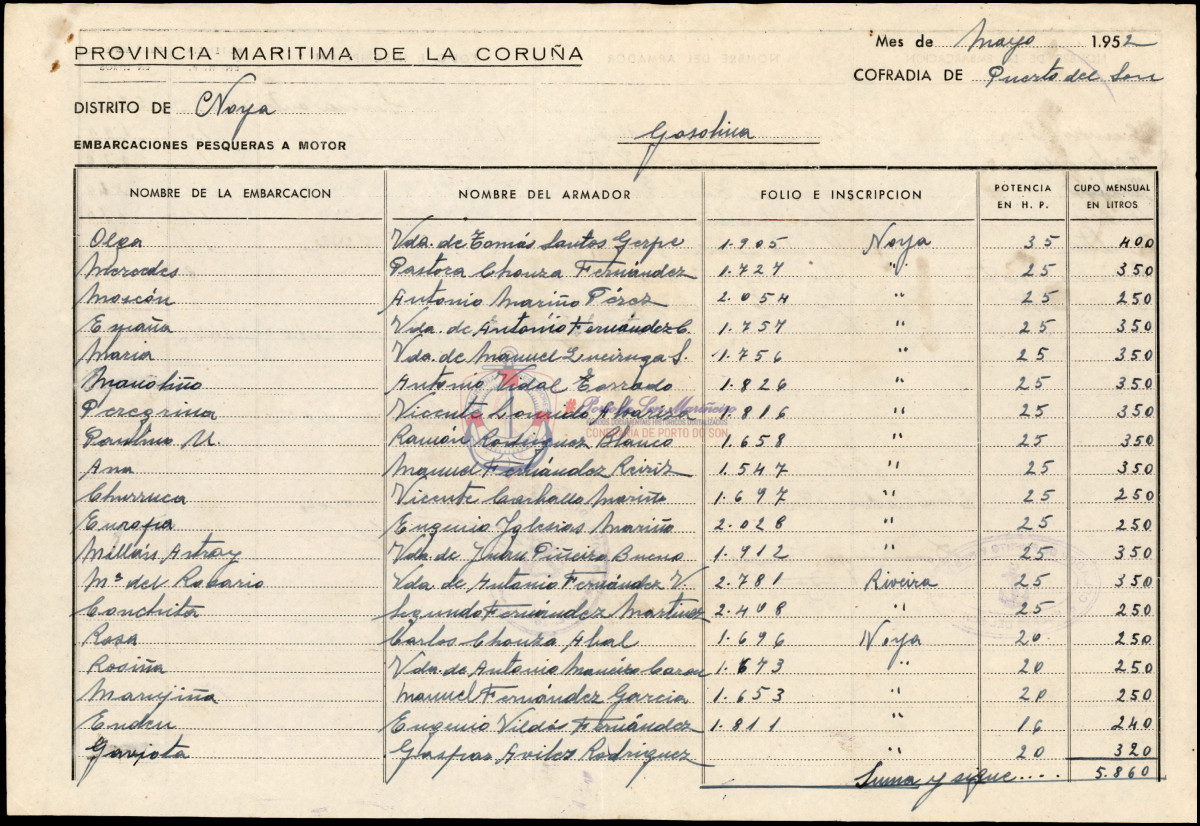 PROVINCIA MARITIMA DE LA CORUÑA
Mes de Mayo 1.952
COFRADIA DE Puerto del Son
DISTRITO DE Noya
Gasolina
EMBARCACIONES PESQUERAS A MOTOR
NOMBRE DE LA EMBARCACION NOMBRE DEL ARMADOR FOLIO E INSCRIPCION POTENCIA EN H. P. CUPO MENSUAL EN LITROS
Olga Vda. de Tomás Santos Gerpe 1.905 Noya 35 400
Mercedes Pastora Chouza Fernández 1.727 " 25 350
Moscón Antonio Mariño Pérez 2.054 " 25 250
España Vda. de Antonio Fernández C. 1.757 " 25 350
Maria Vda. de Manuel S. 1.756 " 25 350
Manoliño Antonio Vidal 1.826 " 25 350
Peregrina Vicente 1.816 " 25 350
Paulino M. Ramón Rodriguez Blanco 1.658 " 25 350
Ana Manuel Fernández Reiriz 1.547 " 25 350
Churruca Vicente Carballo Mariño 1.697 " 25 250
Eugenio Yglesias Mariño 2.028 " 25 250
Millán Astray Vda. de Juan Piñeiro Bueno 1.912 " 25 350
Mª del Rosario Vda. de Antonio Fernández V. 2.781 Riveira 25 350
Conchita Segundo Fernández Martinez 2.408 " 25 250
Rosa Carlos Chouza Abal 1.696 Noya 20 250
Rosiña Vda. de Antonio 1.673 " 20 250
Marujiña Manuel Fernández Garcia 1.653 " 20 250
Eugenio Fernández 1.811 " 16 240
Gaviota Aviles Rodriguez " 20 320
Suma y sigue.... 5.860
Porto do Son Mariñeiro
FONDOS DOCUMENTAIS HISTÓRICOS DIGITALIZADOS
CONFRARÍA DE PORTO DO SON